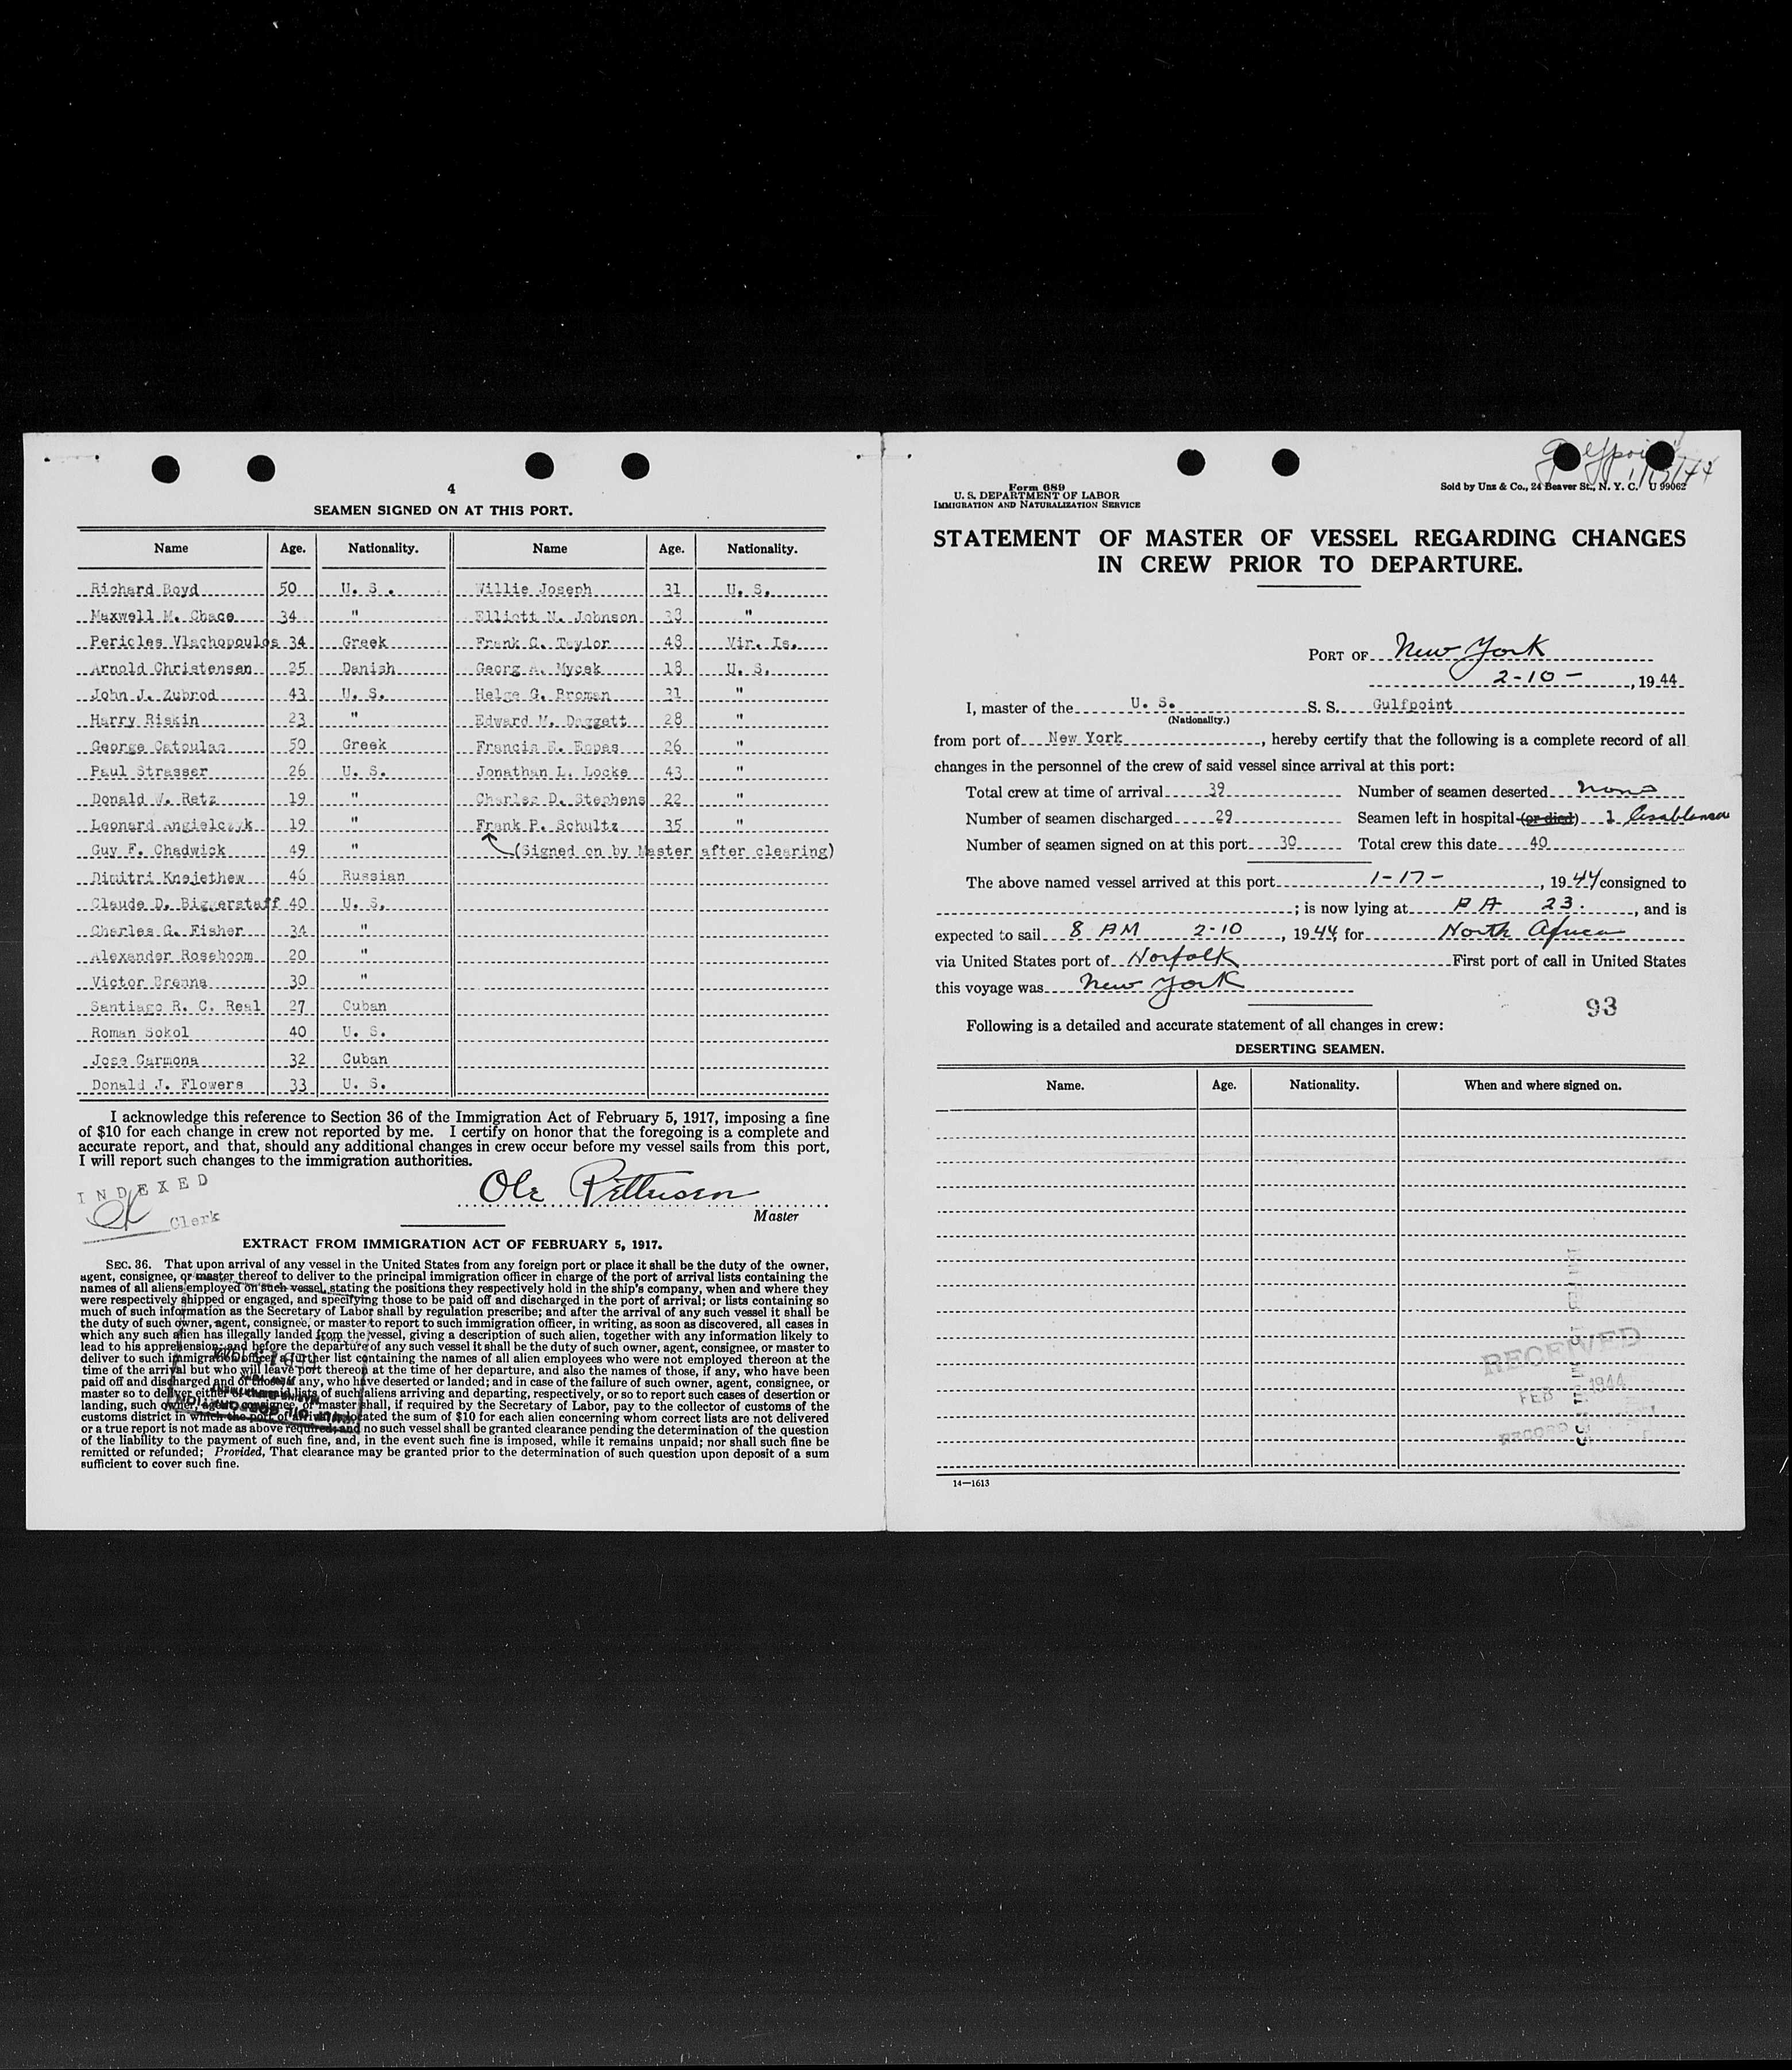 4
SEAMEN SIGNED ON AT THIS PORT.
Name Age. Nationality. Name Age. Nationality.
Richard Boyd 50 U. S. Willie Joseph 31 U. S.
Maxwell M. Chace 34 " Elliott N. Johnson 33 "
Pericles Vlachopoulos 34 Greek Frank C. Taylor 48 Vir. Is.
Arnold Christensen 25 Danish Georg A. Mycek 18 U. S.
John J. Zubrod 43 U. S. Helge G. Broman 31 "
Harry Riskin 23 " Edward M. Doggett 28 "
George Catoulas 50 Greek Francis E. Eppes 26 "
Paul Strasser 26 U. S. Jonathan L. Locke 43 "
Donald W. Retz 19 " Charles D. Stephens 22 "
Leonard Angielczyk 19 " Frank P. Schultz 35 "
Guy F. Chadwick 49 " (Signed on by Master after clearing)
Dimitri Knejethew 46 Russian
Claude D. Biggerstaff 40 U. S.
Charles G. Fisher 34 "
Alexander Roseboom 20 "
Victor Brenna 30 "
Santiago R. C. Real 27 Cuban
Roman Sokol 40 U. S.
Jose Carmona 32 Cuban
Donald J. Flowers 33 U. S.
I acknowledge this reference to Section 36 of the Immigration Act of February 5, 1917, imposing a fine
of $10 for each change in crew not reported by me. I certify on honor that the foregoing is a complete and
accurate report, and that, should any additional changes in crew occur before my vessel sails from this port,
I will report such changes to the immigration authorities.
INDEXED
Clerk
Ole Pettersen
Master
EXTRACT FROM IMMIGRATION ACT OF FEBRUARY 5, 1917.
SEC. 36. That upon arrival of any vessel in the United States from any foreign port or place it shall be the duty of the owner,
agent, consignee, or master thereof to deliver to the principal immigration officer in charge of the port of arrival lists containing the
names of all aliens employed on such vessel, stating the positions they respectively hold in the ship's company, when and where they
were respectively shipped or engaged, and specifying those to be paid off and discharged in the port of arrival; or lists containing so
much of such information as the Secretary of Labor shall by regulation prescribe; and after the arrival of any such vessel it shall be
the duty of such owner, agent, consignee, or master to report to such immigration officer, in writing, as soon as discovered, all cases in
which any such alien has illegally landed from the vessel, giving a description of such alien, together with any information likely to
lead to his apprehension; and before the departure of any such vessel it shall be the duty of such owner, agent, consignee, or master to
deliver to such immigration officer a further list containing the names of all alien employees who were not employed thereon at the
time of the arrival but who will leave port thereon at the time of her departure, and also the names of those, if any, who have been
paid off and discharged and of those, if any, who have deserted or landed; and in case of the failure of such owner, agent, consignee, or
master so to deliver either of the said lists of such aliens arriving and departing, respectively, or so to report such cases of desertion or
landing, such owner, agent, consignee, or master shall, if required by the Secretary of Labor, pay to the collector of customs of the
customs district in which the port of arrival is located the sum of $10 for each alien concerning whom correct lists are not delivered
or a true report is not made as above required; and no such vessel shall be granted clearance pending the determination of the question
of the liability to the payment of such fine, and, in the event such fine is imposed, while it remains unpaid; nor shall such fine be
remitted or refunded; Provided, That clearance may be granted prior to the determination of such question upon deposit of a sum
sufficient to cover such fine.
Gulfpoint
Form 689
U. S. DEPARTMENT OF LABOR
IMMIGRATION AND NATURALIZATION SERVICE
Sold by Unz & Co., 24 Beaver St., N. Y. C. U 99062
STATEMENT OF MASTER OF VESSEL REGARDING CHANGES
IN CREW PRIOR TO DEPARTURE.
PORT OF New York
2-10-, 1944
I, master of the U. S. S. S. Gulfpoint
(Nationality.)
from port of New York, hereby certify that the following is a complete record of all
changes in the personnel of the crew of said vessel since arrival at this port:
Total crew at time of arrival 39 Number of seamen deserted none
Number of seamen discharged 29 Seamen left in hospital (or died) 1 Casablanca
Number of seamen signed on at this port 30 Total crew this date 40
The above named vessel arrived at this port 1-17-, 1944 consigned to
; is now lying at P A 23., and is
expected to sail 8 AM 2-10, 1944, for North Africa
via United States port of Norfolk First port of call in United States
this voyage was New York
93
Following is a detailed and accurate statement of all changes in crew:
DESERTING SEAMEN.
Name. Age. Nationality. When and where signed on.
RECEIVED
FEB 1944
RECORD
14—1613